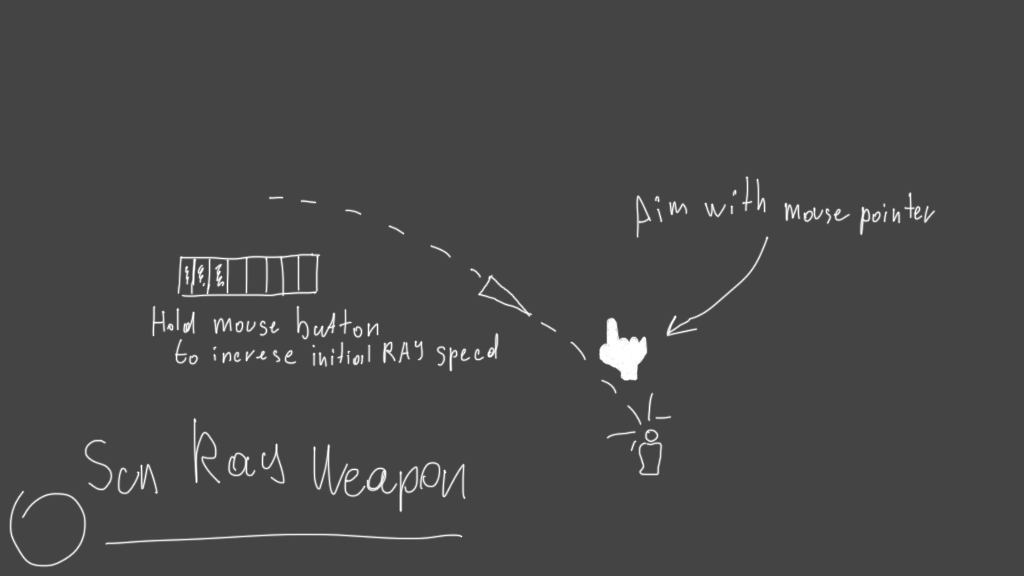 Aim with mouse pointer
Hold mouse button
to increse initial RAY speed
Sun Ray Weapon